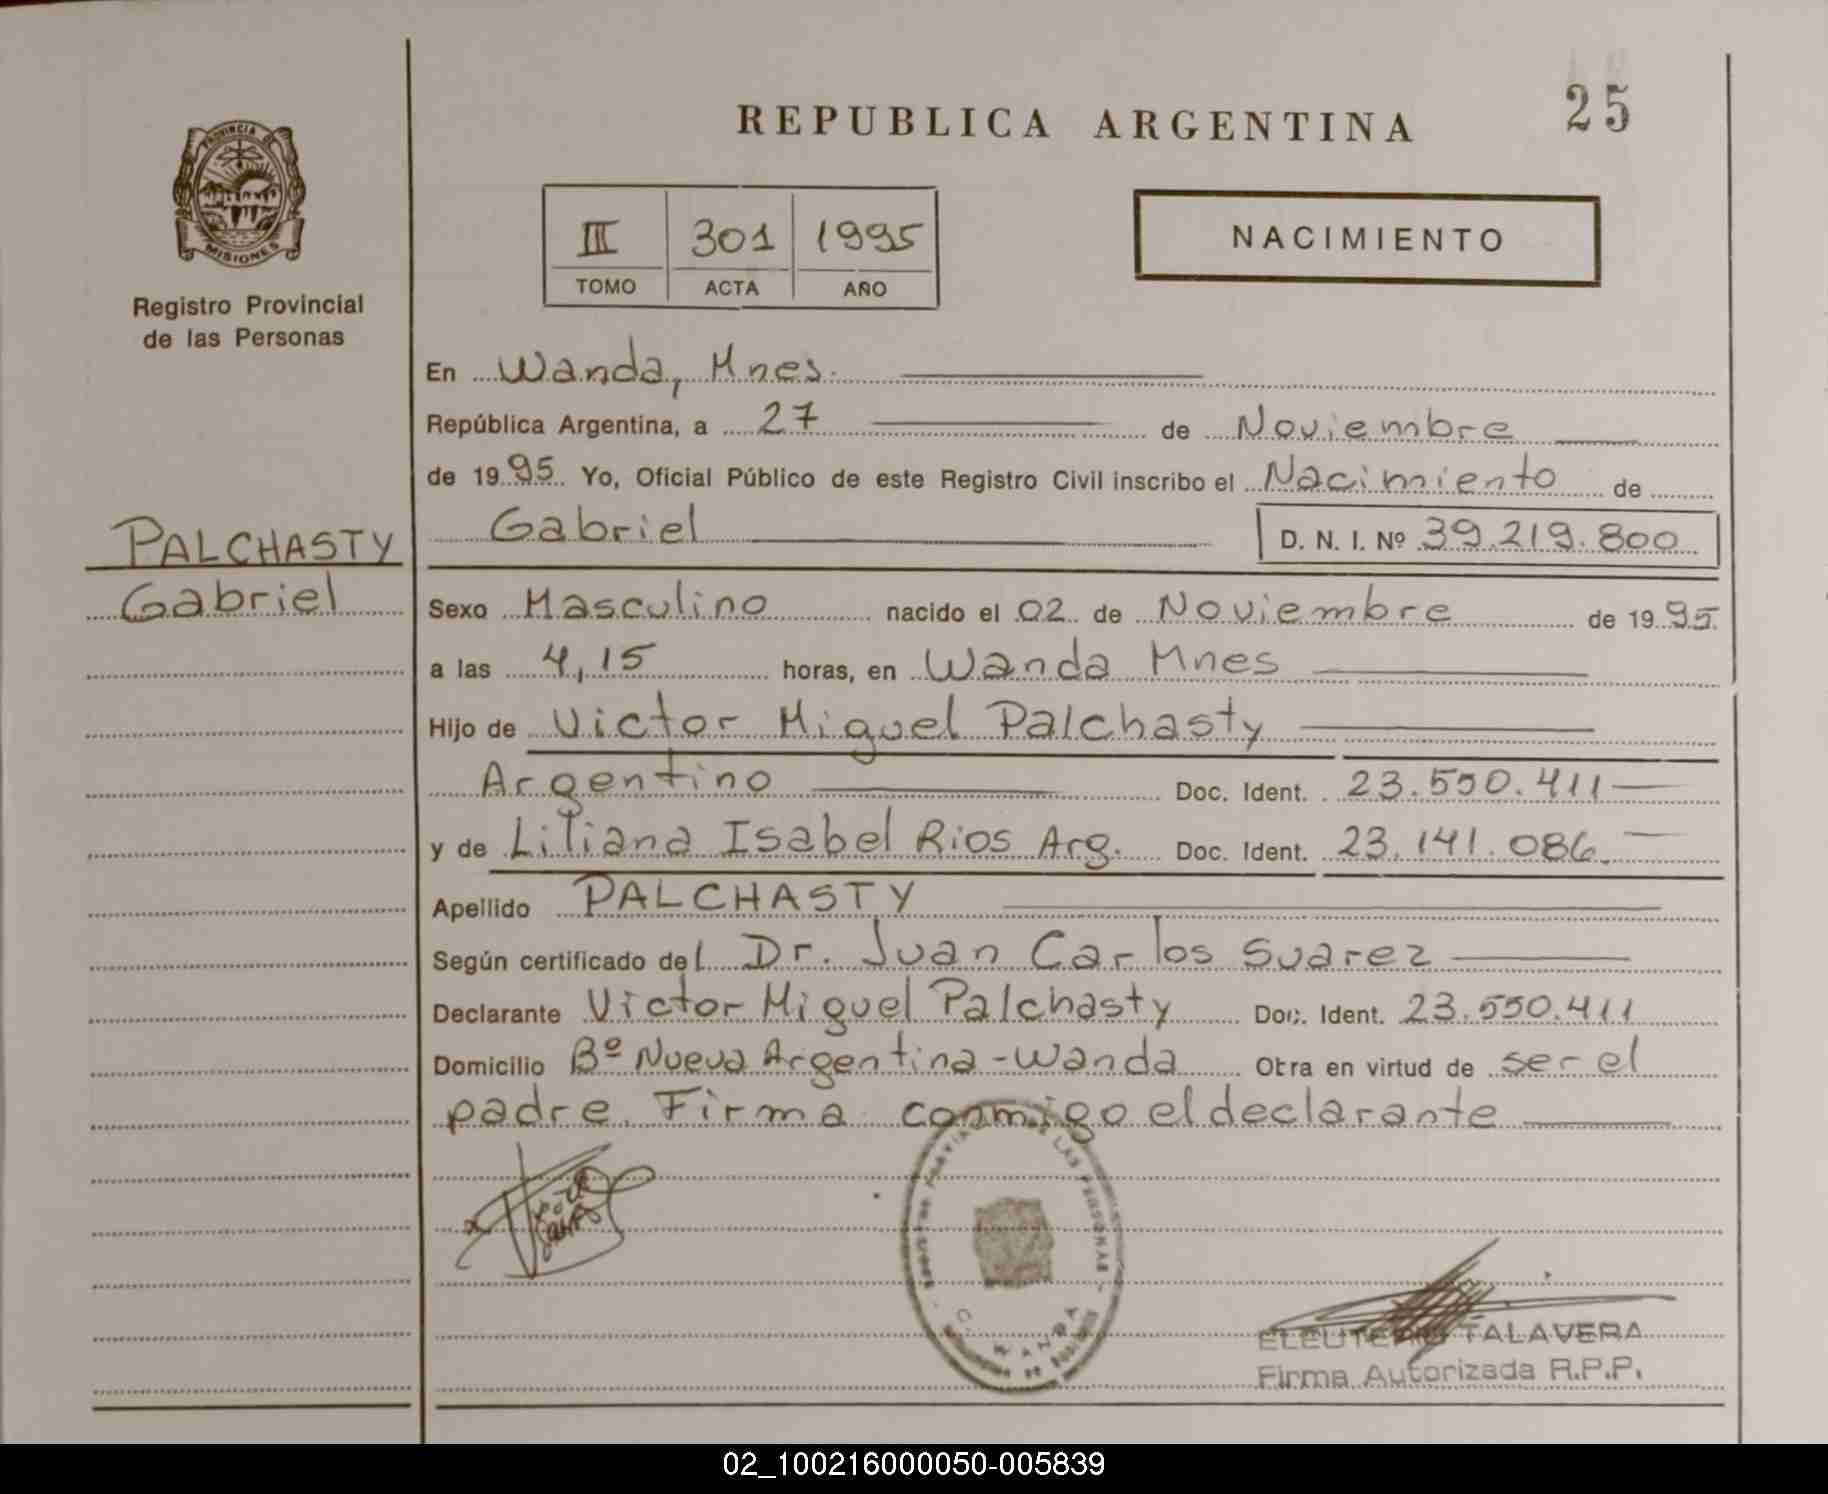 REPUBLICA ARGENTINA
25
PROVINCIA DE MISIONES
Registro Provincial
de las Personas
III 301 1995
TOMO ACTA AÑO
NACIMIENTO
En Wanda, Mnes.
República Argentina, a 27 de Noviembre
de 1995 Yo, Oficial Público de este Registro Civil inscribo el Nacimiento de
Gabriel D. N. I. Nº 39.219.800
PALCHASTY
Gabriel
Sexo Masculino nacido el 02 de Noviembre de 1995.
a las 4,15 horas, en Wanda Mnes
Hijo de Victor Miguel Palchasty
Argentino Doc. Ident. 23.550.411
y de Liliana Isabel Rios Arg. Doc. Ident. 23.141.086.
Apellido PALCHASTY
Según certificado del Dr. Juan Carlos Suarez
Declarante Victor Miguel Palchasty Doc. Ident. 23.550.411
Domicilio Bº Nueva Argentina - Wanda Otra en virtud de ser el
padre. Firma conmigo el declarante
LAS PERSONAS
WANDA
ELEUTERIO TALAVERA
Firma Autorizada R.P.P.
02_100216000050-005839